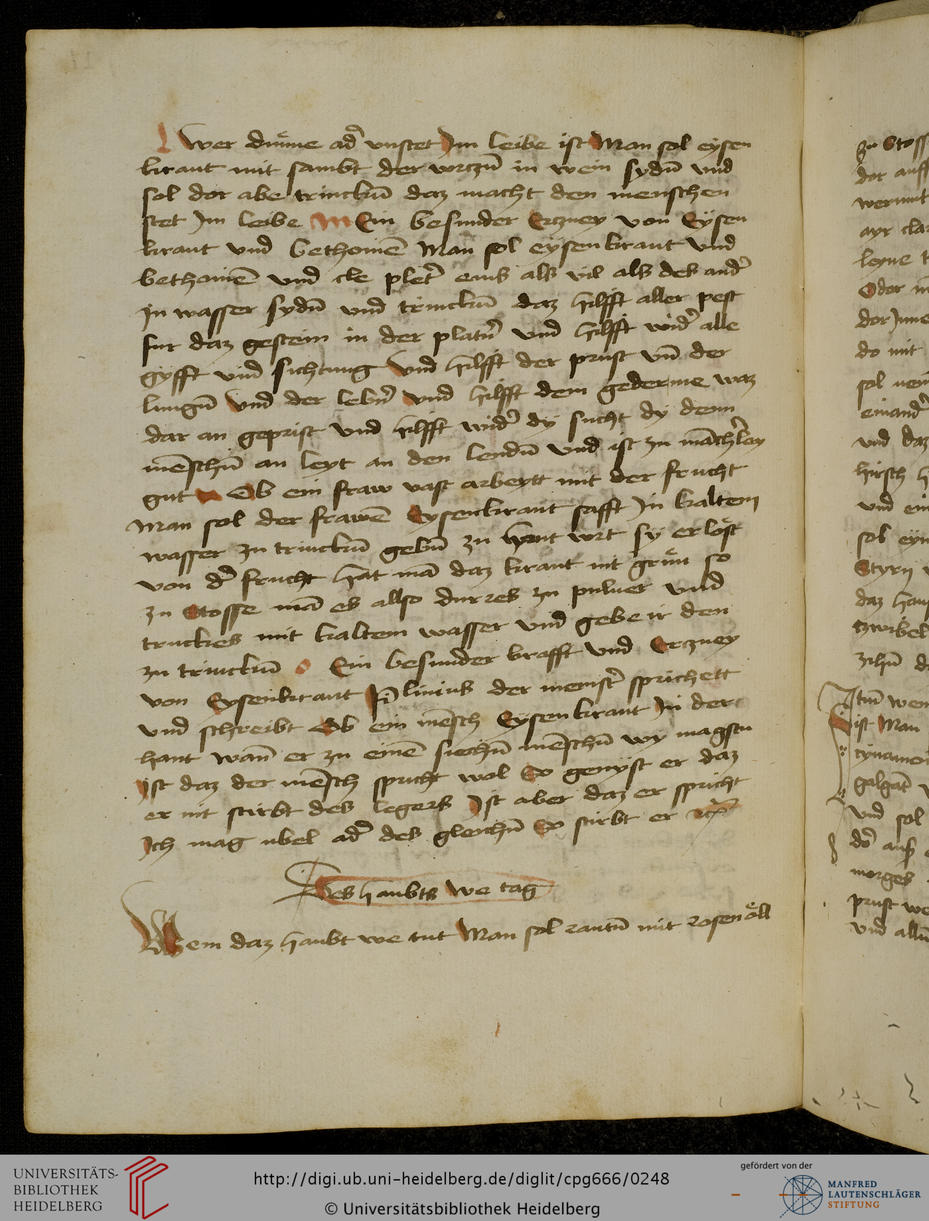 Wer dinne ad' vnstet Im leibe ist Man sol eysen
kraut mit sambt der worczn̄ in wein sydn̄ vnd
sol dor abe trinckn̄ daz macht den menschen
stet Im leibe Ein besunder Erczney von Eysen
kraut vnd bethonien̄ Man sol eysenkraut vnd
bethonien̄ vnd cle plet' eins als vil als des and'
In wasser sydn̄ vnd trinckn̄ daz hilfft aller pest
fur daz gestein in der platn̄ vnd hilfft wid' alle
gyfft vnd sichtung vnd hilfft der prust vn̄ der
lungn̄ vnd der lebn̄ vnd hilfft dem gederme waz
dar an geprist vnd hilfft wid' dy sucht dy dem
mēschn̄ an leyt an den lendn̄ vnd ist zu māch'ley
gut Ob ein fraw vast arbeytt mit der frucht
Man sol der frawē Eysenkraut safft In kaltem
wasser zu trinckn̄ gebn̄ zu hant wrt sy erlost
von d' frucht hat mā daz kraut nit grün so
zu Stosse mā es allso durres zu puluer vnd
truckes mit kaltem wasser vnd gebe ir den
zu trinckn̄ Ein besunder krafft vnd Erczney
von Eysenkraut Plinius der meinst' sprichett
vnd schreibt Ob ein mēsch Eysenkraut In der
hant wan̄ er zu einē siechn̄ mēschn̄ wy magstu
Ist daz der mēsch spricht wol So genyst er daz
er nit stirbt des legers Ist aber daz er spricht
Ich mag ubel ad' des gleichn̄ So stirbt er
Des haubts we tag
Wem daz haubt we tut Man sol rautn̄ mit rosenöll
zu Stoss
dor auff
wermut
ayr cla
Oder
dor Inne
do mit
sol
einand'
vnd daz
hirsch
vnd ein
sol
daz hau
zwibel
Itm̄ wen
ist Man
galgāt
vnd sol
morges
prust we
vnd alln̄
UNIVERSITÄTS-
BIBLIOTHEK
HEIDELBERG
http://digi.ub.uni-heidelberg.de/diglit/cpg666/0248
© Universitätsbibliothek Heidelberg
gefördert von der
MANFRED
LAUTENSCHLÄGER
STIFTUNG